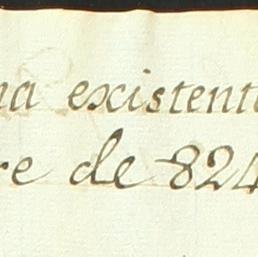 na existent
re de 824